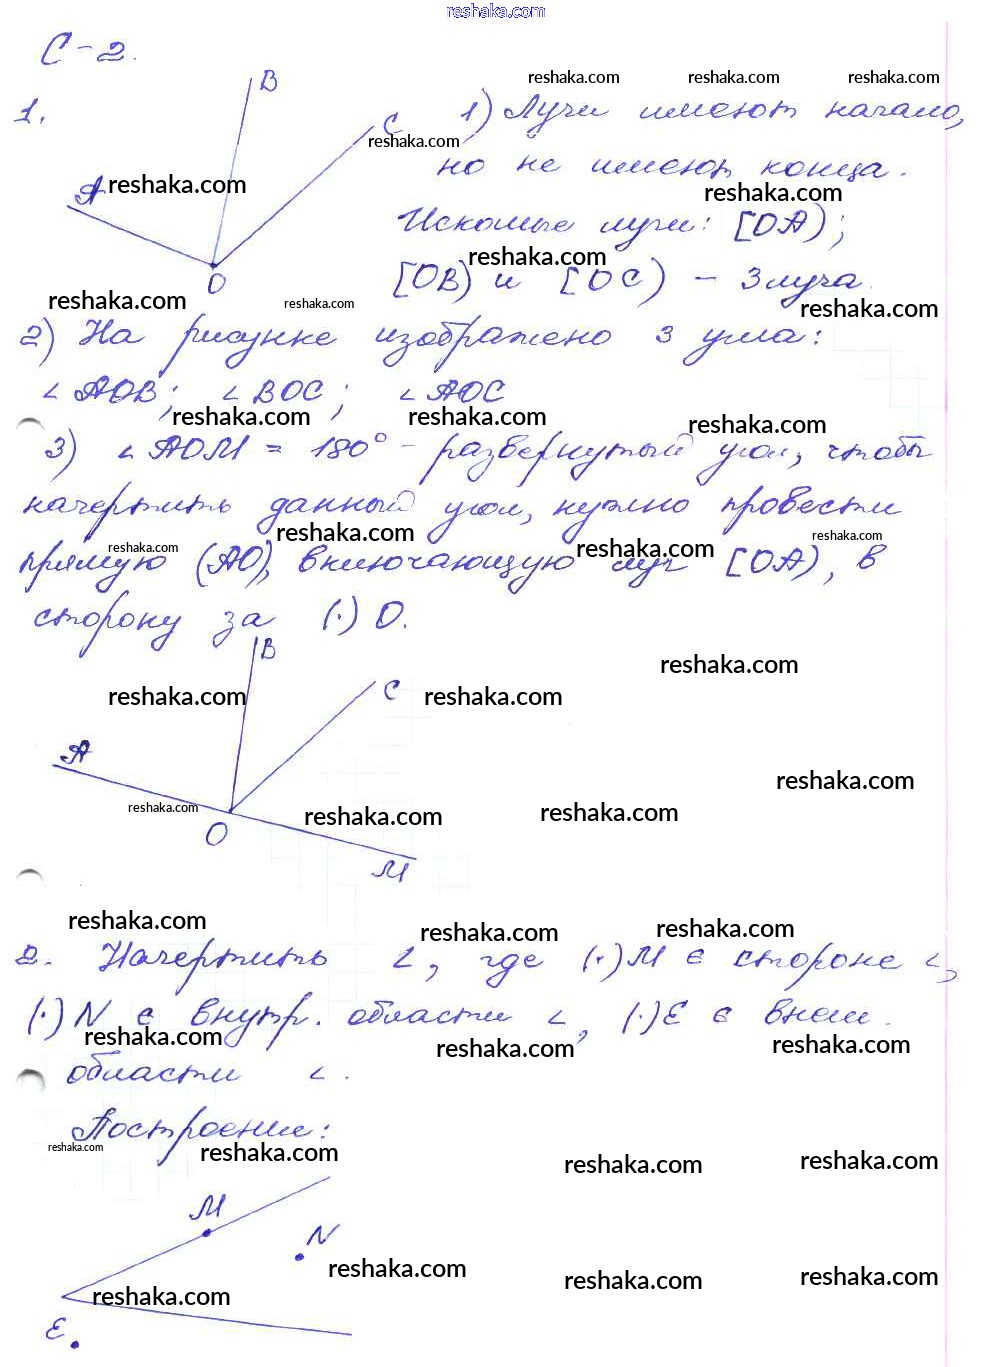 reshaka.com
С-2.
1.
B
C
A
O
reshaka.com reshaka.com reshaka.com
1) Лучи имеют начало,
reshaka.com
но не имеют конца.
reshaka.com reshaka.com
Искомые лучи: [OA);
reshaka.com
[OB) и [OC) - 3 луча.
reshaka.com reshaka.com reshaka.com
2) На рисунке изображено 3 угла:
∠AOB; ∠BOC; ∠AOC
reshaka.com reshaka.com reshaka.com
3) ∠AOM = 180° - развернутый угол, чтобы
начертить данный угол, нужно провести
reshaka.com reshaka.com reshaka.com reshaka.com
прямую (AO), включающую луч [OA), в
сторону за (·) O.
B
reshaka.com
C
reshaka.com reshaka.com
A
reshaka.com
reshaka.com reshaka.com reshaka.com
O
M
reshaka.com reshaka.com reshaka.com
2. Начертить ∠, где (·) M ∈ стороне ∠,
(·) N ∈ внутр. области ∠, (·) E ∈ внеш.
reshaka.com reshaka.com reshaka.com
области ∠.
Построение:
reshaka.com reshaka.com reshaka.com reshaka.com
M
N
reshaka.com reshaka.com reshaka.com
reshaka.com
E